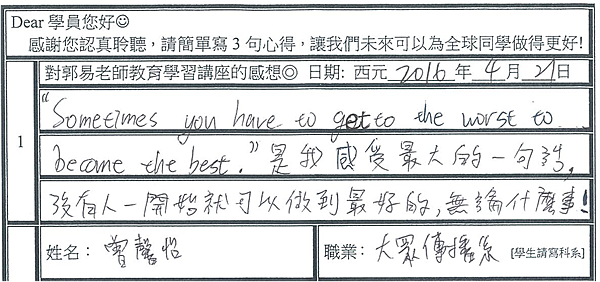 Dear 學員您好☺
感謝您認真聆聽，請簡單寫 3 句心得，讓我們未來可以為全球同學做得更好!
對郭易老師教育學習講座的感想◎ 日期: 西元 2016 年 4 月 21 日
1
“Sometimes you have to get to the worst to
become the best.” 是我感受最大的一句話，
沒有人一開始就可以做到最好的，無論什麼事！
姓名： 曾馨怡
職業： 大眾傳播系 [學生請寫科系]